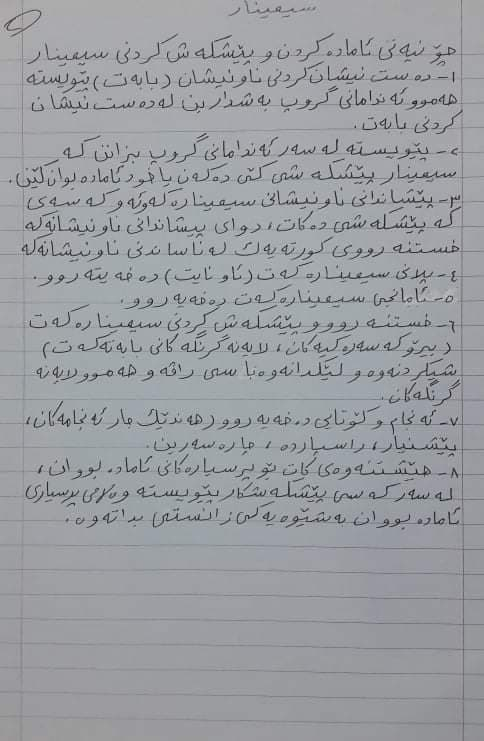 سیمینار
چۆنیەتی ئامادەکردن و پێشکەش کردنی سیمینار
١- دەست نیشان کردنی ناونیشان (بابەت) پێویستە
هەموو ئەندامانی گروپ بەشداربن لە دەست نیشان
کردنی بابەت.
٢- پێویستە لە سەر ئەندامانی گروپ بزانن کە
سیمینار پێشکەشی کێی دەکەن یاخود ئامادەبوان کێن.
٣- پێشاندانی ناونیشانی سیمینارەکە وئەو کەسەی
کە پێشکەشی دەکات، دوای پیشاندانی ناونیشانەکە
خستنە رووی کورتەیەک لە ناساندنی ناونیشانەکە
٤- پلانی سیمینارەکەت (ئاونایت) دەخەیتەروو.
٥- ئامانجی سیمینارەکەت دەخەیەروو.
٦- خستنە روو و پێشکەش کردنی سیمینارەکەت
(بیرۆکە سەرەکیەکان، لایەنە گرنگەکانی بابەتەکەت)
شیکردنەوە و لێکدانەوە باسی راڤە و هەموو لایەنە
گرنگەکان.
٧- ئەنجام و کۆتایی دەخەیەروو (هەندێک جار ئەنجامەکان،
پێشنیار، راسپاردە، چارەسەربن.
٨- هێشتنەوەی کات بۆ پرسیارەکانی ئامادەبووان،
لە سەر کەسی پێشکەشکار پێویستە وەڵامی پرسیاری
ئامادەبووان بەشێوەیەکی زانستی بداتەوە.